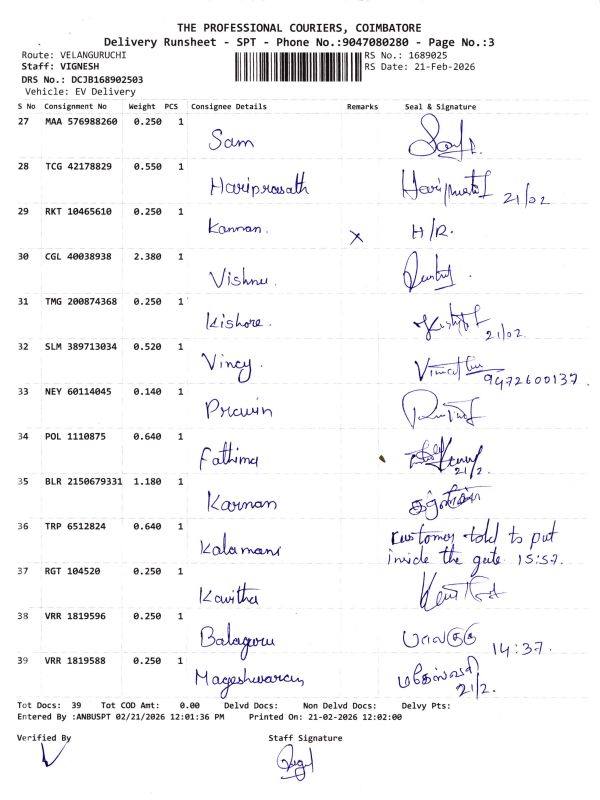 THE PROFESSIONAL COURIERS, COIMBATORE
Delivery Runsheet - SPT - Phone No.:9047080280 - Page No.:3
Route: VELANGURUCHI
RS No.: 1689025
Staff: VIGNESH
RS Date: 21-Feb-2026
DRS No.: DCJB168902503
Vehicle: EV Delivery
S No Consignment No Weight PCS Consignee Details Remarks Seal & Signature
27 MAA 576988260 0.250 1 Sam
28 TCG 42178829 0.550 1 Hariprasath 21/02
29 RKT 10465610 0.250 1 Kannan. X H/R.
30 CGL 40038938 2.380 1 Vishnu.
31 TMG 200874368 0.250 1 Kishore. 21/02
32 SLM 389713034 0.520 1 Vincy. 9472600137.
33 NEY 60114045 0.140 1 Pravin
34 POL 1110875 0.640 1 Fathima 21/2.
35 BLR 2150679331 1.180 1 Karnan
36 TRP 6512824 0.640 1 Kalamani Customer told to put
inside the gate 15:57.
37 RGT 104520 0.250 1 Kavitha
38 VRR 1819596 0.250 1 Balaguru பாலகுரு 14:37.
39 VRR 1819588 0.250 1 Mageshwaran 21/2.
Tot Docs: 39 Tot COD Amt: 0.00 Delvd Docs: Non Delvd Docs: Delvy Pts:
Entered By :ANBUSPT 02/21/2026 12:01:36 PM Printed On: 21-02-2026 12:02:00
Verified By Staff Signature